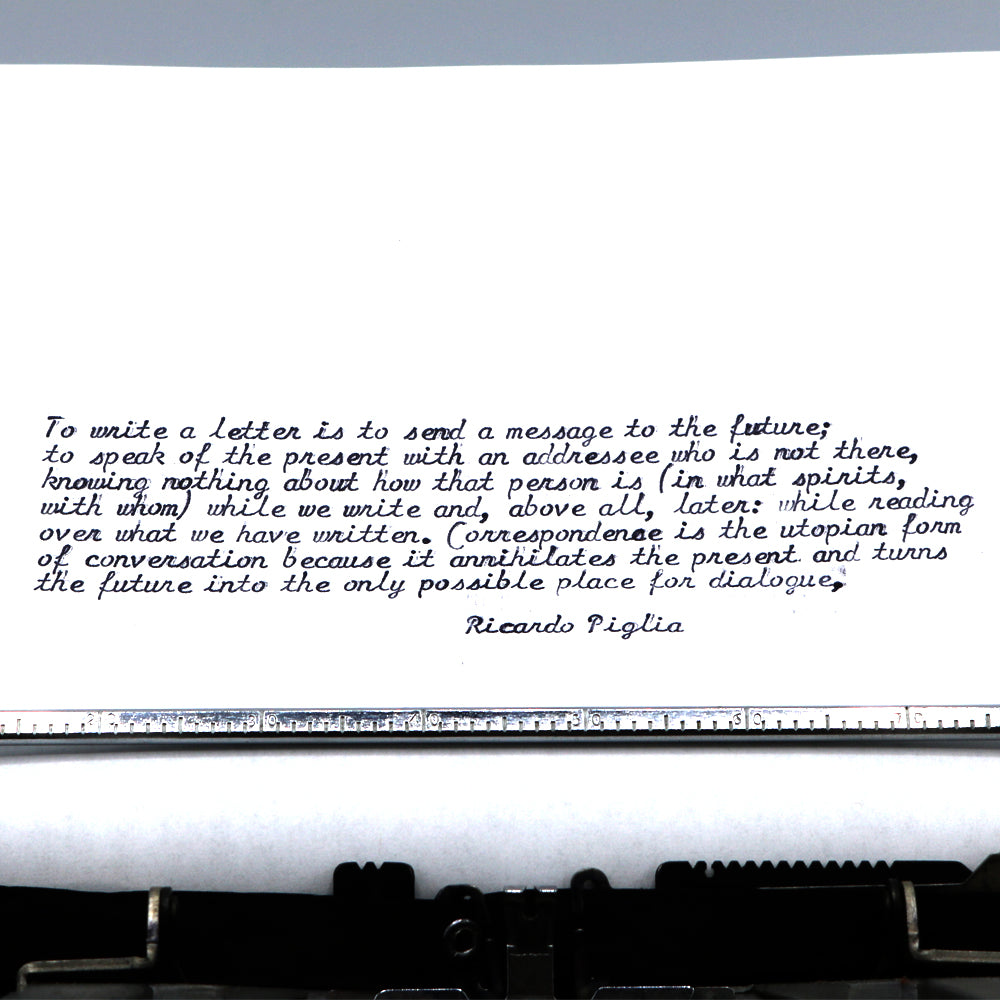 To write a letter is to send a message to the future;
to speak of the present with an addressee who is not there,
knowing nothing about how that person is (in what spirits,
with whom) while we write and, above all, later: while reading
over what we have written. Correspondence is the utopian form
of conversation because it annihilates the present and turns
the future into the only possible place for dialogue,
Ricardo Piglia
20 30 40 50 60 70